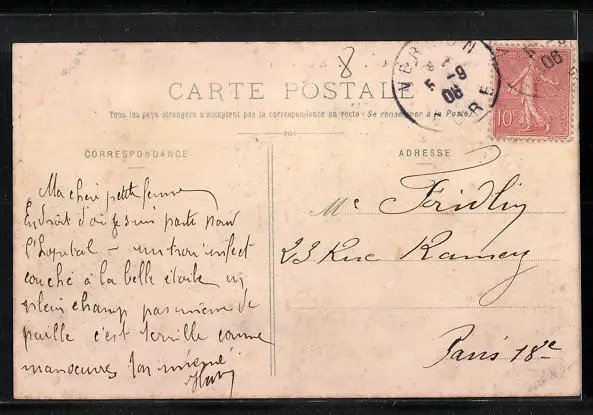 CARTE POSTALE
Tous les pays étrangers n'acceptent pas la correspondance au recto (Se renseigner à la Poste)
CORRESPONDANCE
Ma chère petite femme
Endroit d'où je suis parti pour
l'hopital — un trou infect
couché à la belle étoile en
plein champ pas même de
paille c'est terrible comme
manoeuvres ton
ADRESSE
Me Fridlin
23 Rue Ramey
Paris 18e
8
VERNON
5 -9
06
EURE
10c
06